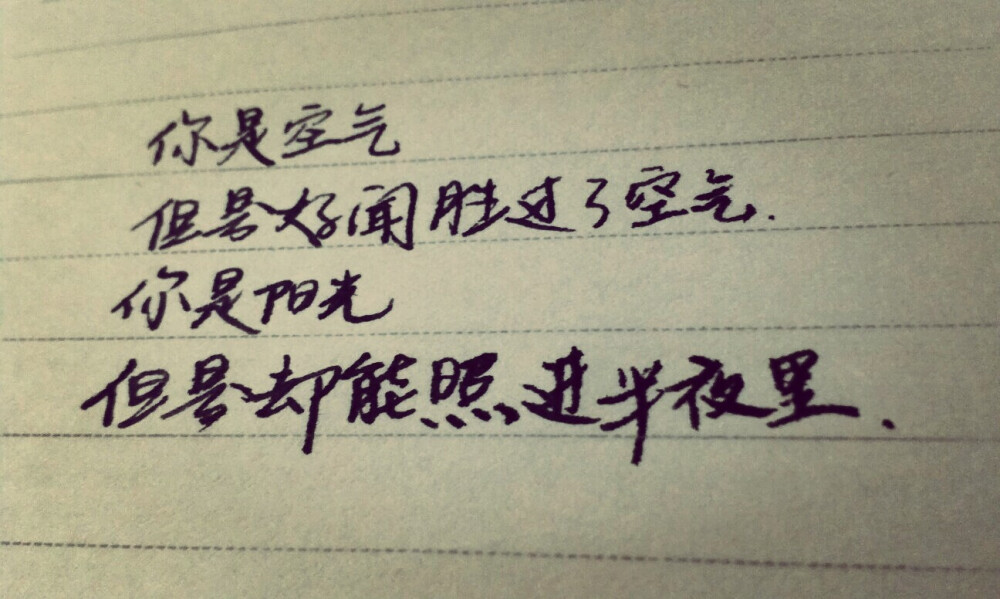 你是空气
但是好闻胜过了空气.
你是阳光
但是却能照进半夜里.